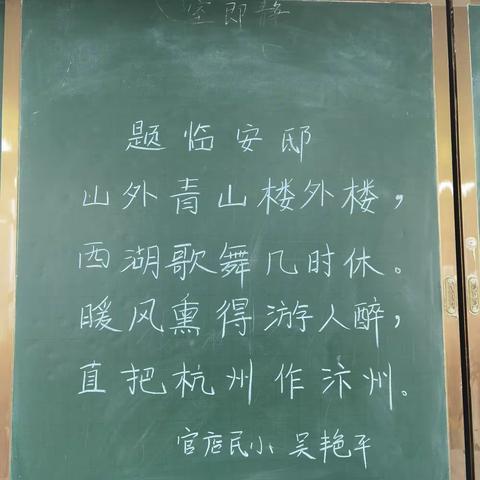 室即静
题临安邸
山外青山楼外楼，
西湖歌舞几时休。
暖风熏得游人醉，
直把杭州作汴州。
官庄民小 吴艳平